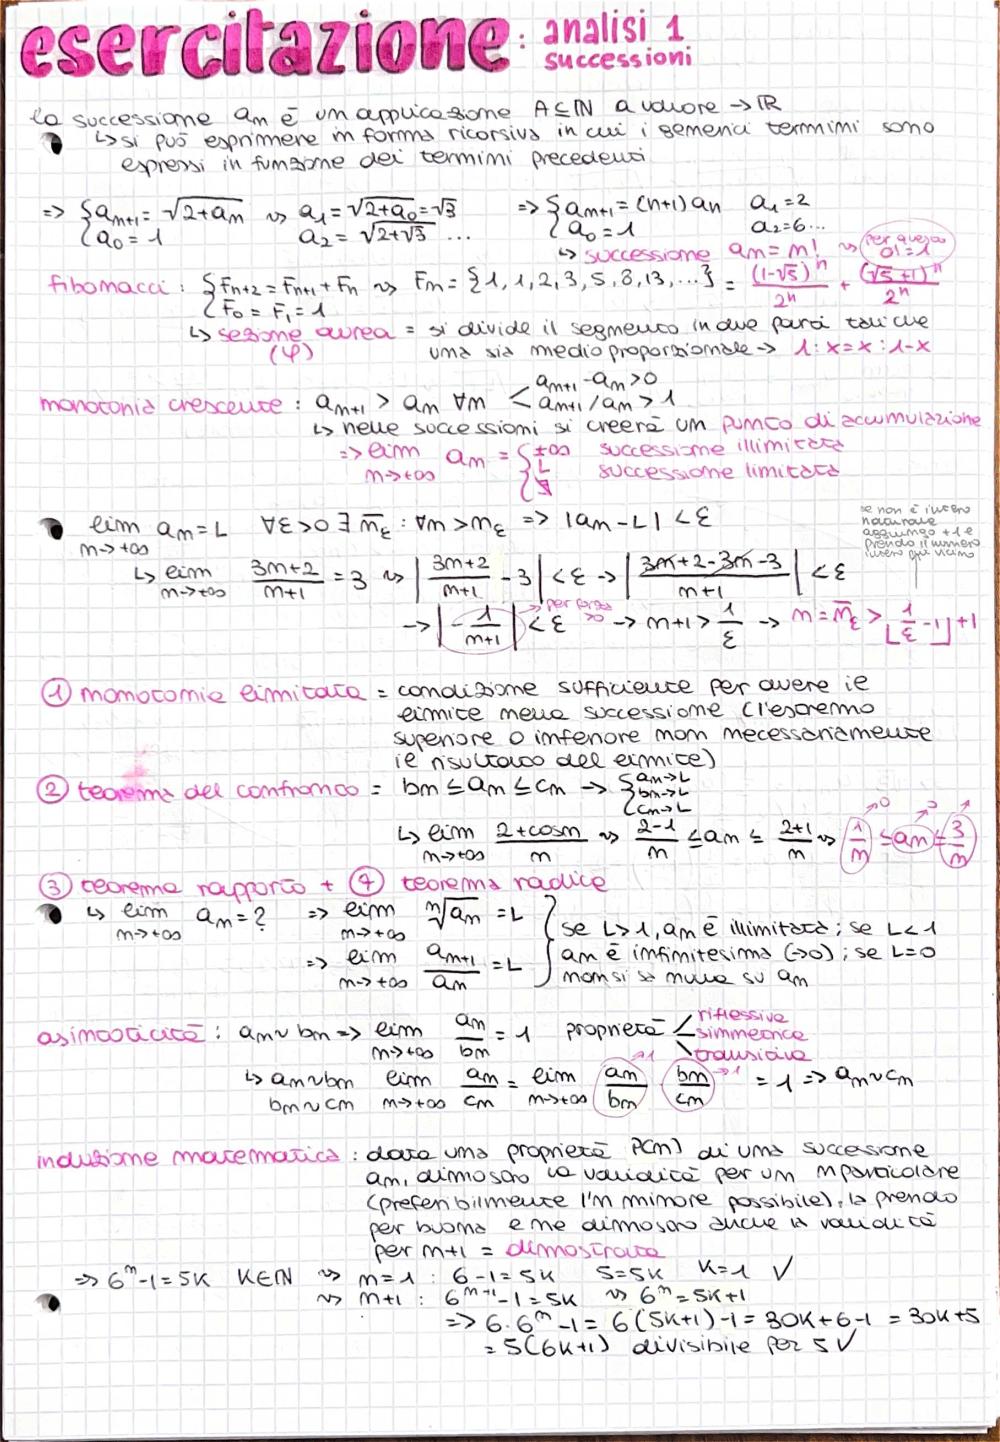 esercitazione: analisi 1
successioni
la successione an è un applicazione A⊆ℕ a valore → ℝ
↳ si può esprimere in forma ricorsiva in cui i generici termini sono
espressi in funzione dei termini precedenti
=> {an+1 = √(2+an) ⇝ a1 = √(2+a0) = √3 => {an+1 = (n+1) an a1=2
{a0 = 1 a2 = √(2+√3) ... {a0 = 1 a2=6...
↳ successione an = n! ⇝ per questo 0!=1
fibonacci: {Fn+2 = Fn+1 + Fn ⇝ Fn = {1, 1, 2, 3, 5, 8, 13, ...} = (1-√5)^n/2^n + (√5+1)^n/2^n
{F0 = F1 = 1
↳ sezione aurea = si divide il segmento in due parti tali che
(φ) una sia medio proporzionale → 1:x = x:1-x
monotonia crescente: an+1 > an ∀n < an+1 - an > 0
an+1/an > 1
↳ nelle successioni si creerà un punto di accumulazione
=> lim n→+∞ an = {±∞ successione illimitata
{L successione limitata
{∄
lim n→+∞ an = L ∀ε>0 ∃ n̄ε : ∀n > nε => |an - L| < ε
se non è intero
naturale
aggiungo +1 e
prendo il numero
intero più vicino
↳ lim n→+∞ (3n+2)/(n+1) = 3 ⇝ |(3n+2)/(n+1) - 3| < ε → |(3n+2-3n-3)/(n+1)| < ε
→ |-1/(n+1)| < ε per forza >0 → n+1 > 1/ε → n = n̄ε > ⌊1/ε - 1⌋ + 1
① monotonia limitata = condizione sufficiente per avere il
limite nella successione (l'estremo
superiore o inferiore non necessariamente
il risultato del limite)
② teorema del confronto = bn ≤ an ≤ cn → {an→L
{bn→L
{cn→L
↳ lim n→+∞ (2+cosn)/n ⇝ (2-1)/n ≤ an ≤ (2+1)/n ⇝ 1/n →0 ≤ an →0 ≤ 3/n
③ teorema rapporto + ④ teorema radice
↳ lim n→+∞ an = ? => lim n→+∞ ⁿ√an = L } se L>1, an è illimitata; se L<1
=> lim n→+∞ an+1/an = L } an è infinitesima (→0); se L=0
non si sa nulla su an
asintoticità: an ~ bn => lim n→+∞ an/bn = 1 proprietà < riflessiva
simmetrica
transitiva
↳ an~bn lim n→+∞ an/cn = lim n→+∞ an/bn →1 · bn/cn →1 = 1 => an~cn
bn~cn
induzione matematica: data una proprietà P(n) di una successione
an, dimostro la validità per un n particolare
(preferibilmente l'n minore possibile), la prendo
per buona e ne dimostro anche la validità
per n+1 = dimostrata
=> 6^n - 1 = 5K K∈ℕ ⇝ n=1 : 6-1 = 5K 5=5K K=1 ✓
⇝ n+1 : 6^(n+1) - 1 = 5K ⇝ 6^n = 5K+1
=> 6·6^n - 1 = 6(5K+1)-1 = 30K+6-1 = 30K+5
= 5(6K+1) divisibile per 5 ✓